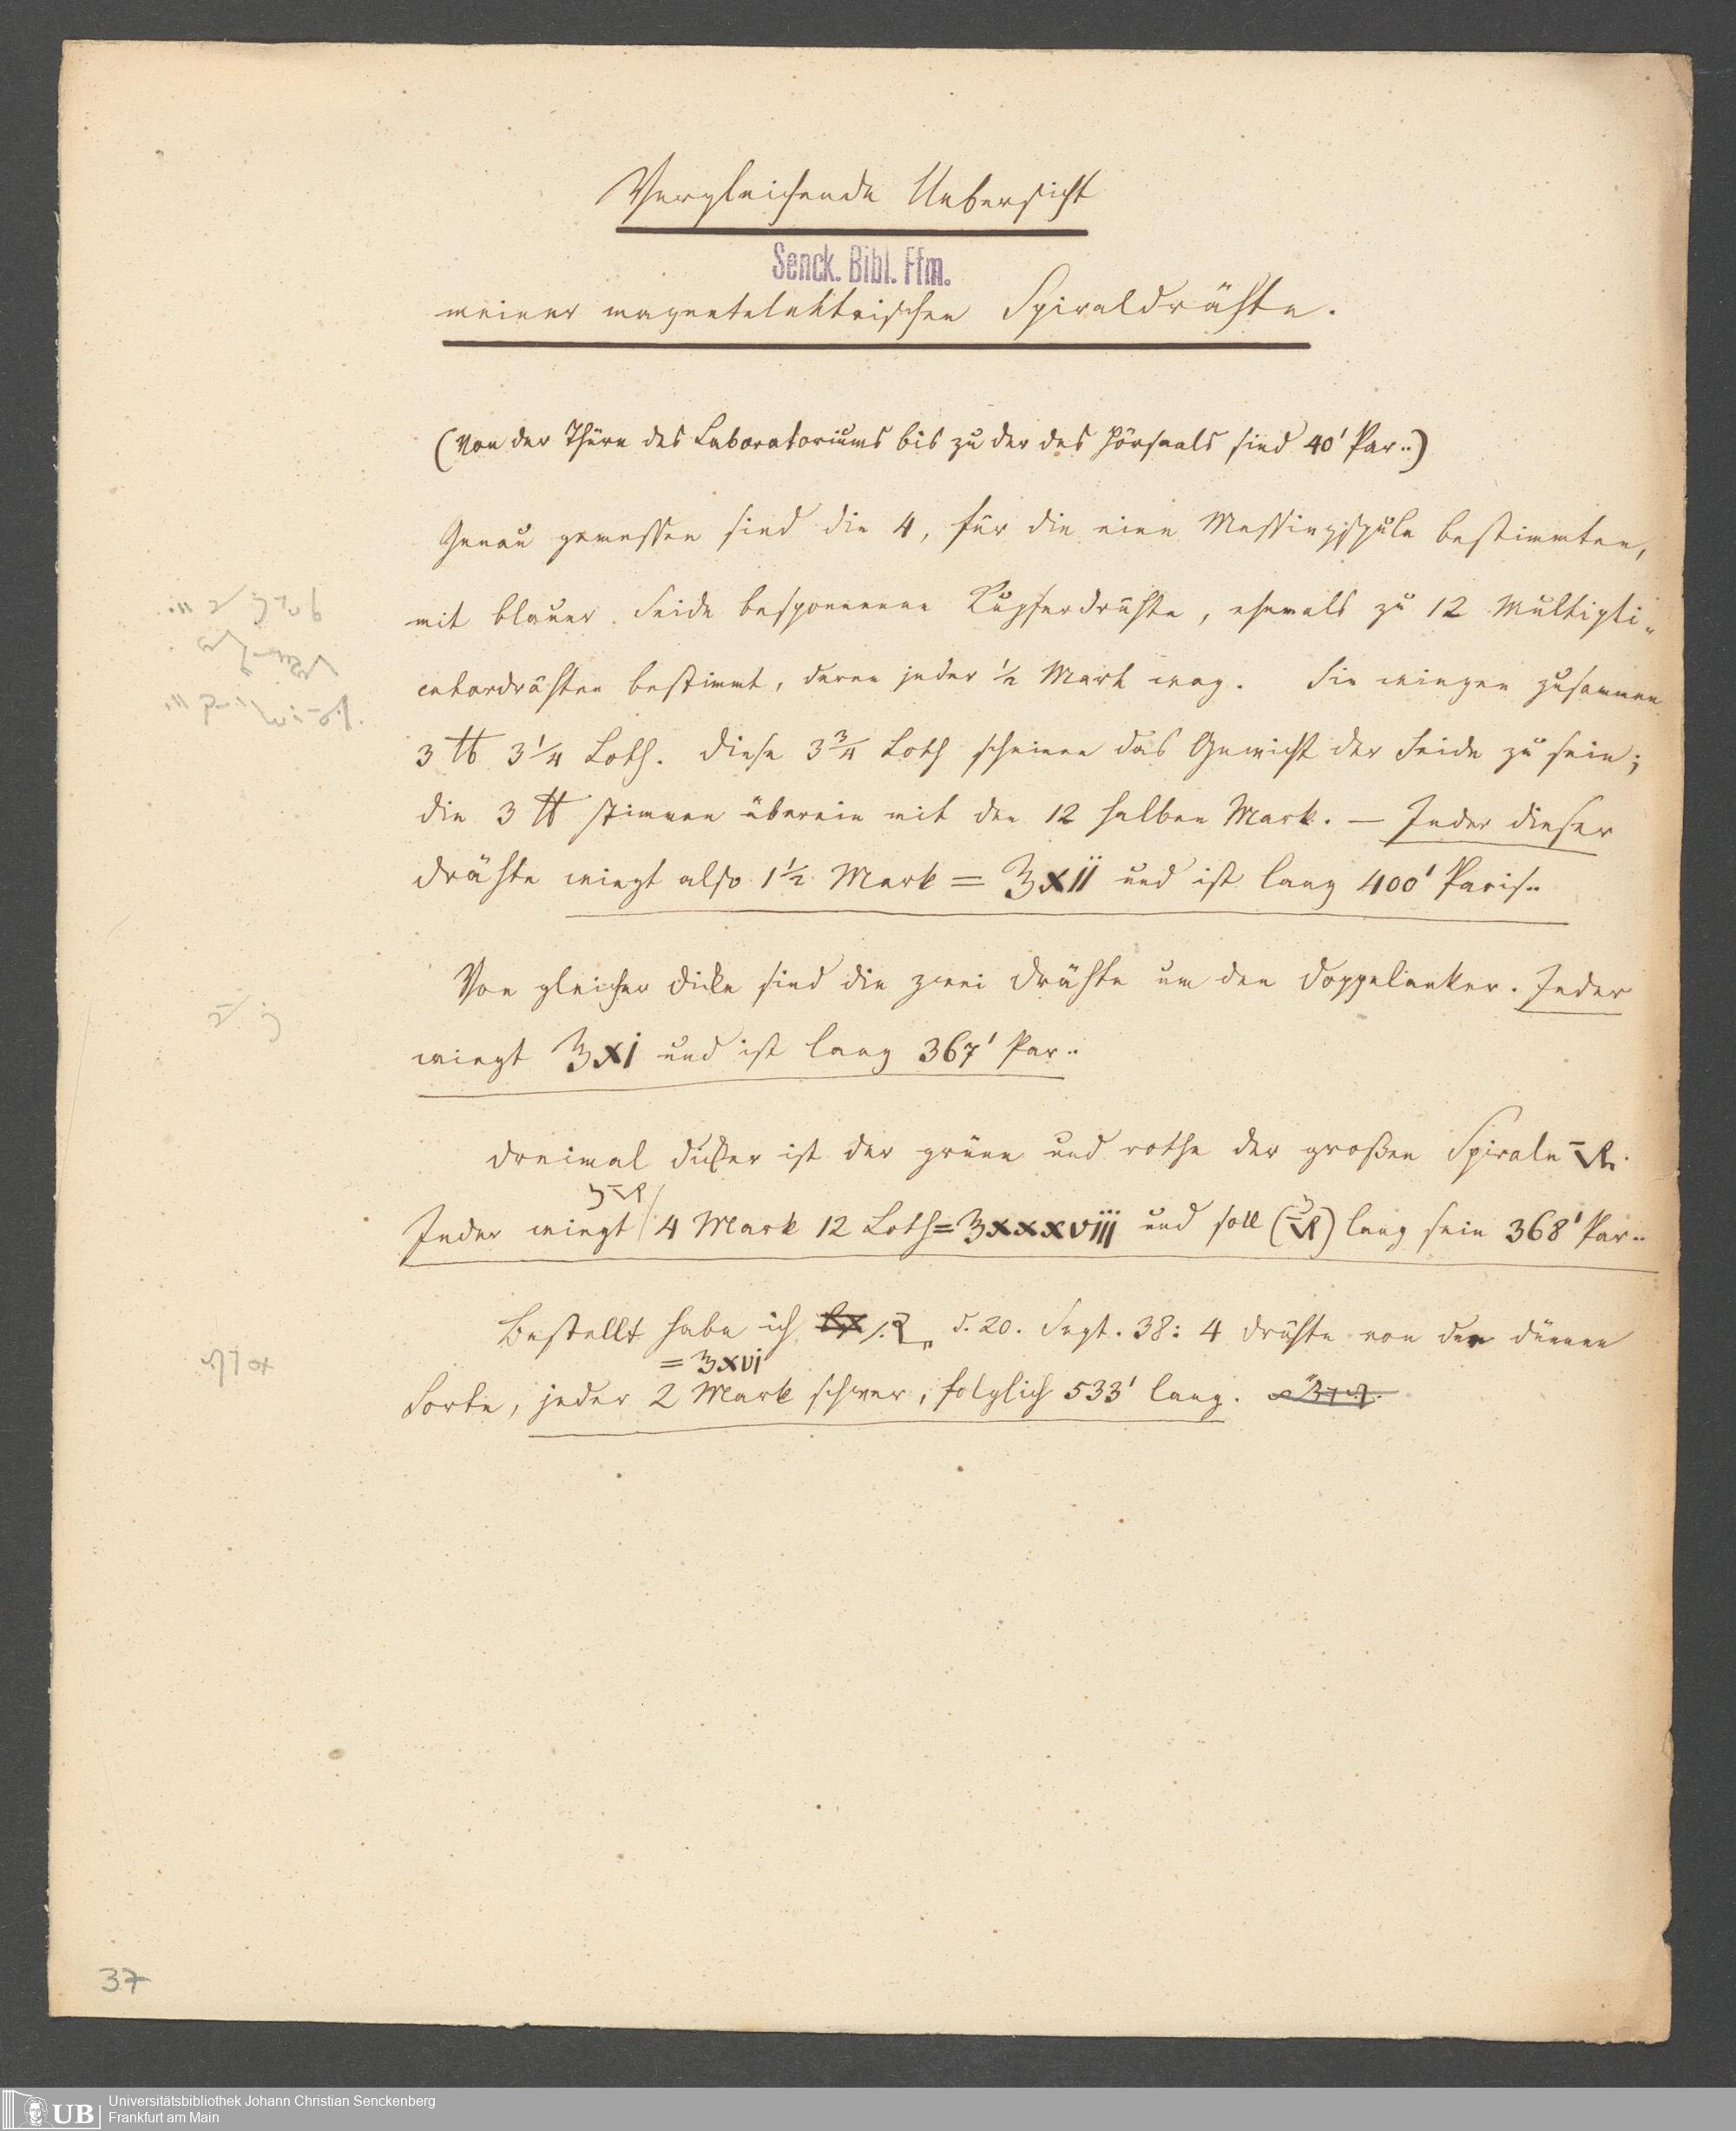 Vergleichende Uebersicht
Senck. Bibl. Ffm.
meiner magnetelektrischen Spiraldrähte.
(Von der Thüre des Laboratoriums bis zu der des Hörsaals sind 40' Par..)
Genau gemessen sind die 4, für die eine Messingspule bestimmten,
mit blauer Seide besponnenen Kupferdrähte, ehemals zu 12 Multipli-
catordrähten bestimmt, deren jeder ½ Mark wog. Sie wiegen zusammen
3 ℔ 3¼ Loth. Diese 3¾ Loth scheinen das Gewicht der Seide zu sein;
die 3 ℔ stimmen überein mit den 12 halben Mark. — Jeder dieser
Drähte wiegt also 1½ Mark = ℥xii und ist lang 400' Paris..
Von gleicher Dicke sind die zwei Drähte um den Doppelanker. Jeder
wiegt ℥xi und ist lang 367' Par..
Dreimal dicker ist der grüne und rothe der großen Spirale
Jeder wiegt 4 Mark 12 Loth = ℥xxxviii und soll lang sein 368' Par..
Bestellt habe ich d. 20. Sept. 38: 4 Drähte von der dünnen
= ℥xvi
Sorte, jeder 2 Mark schwer, folglich 533' lang.
37
UB
Universitätsbibliothek Johann Christian Senckenberg
Frankfurt am Main